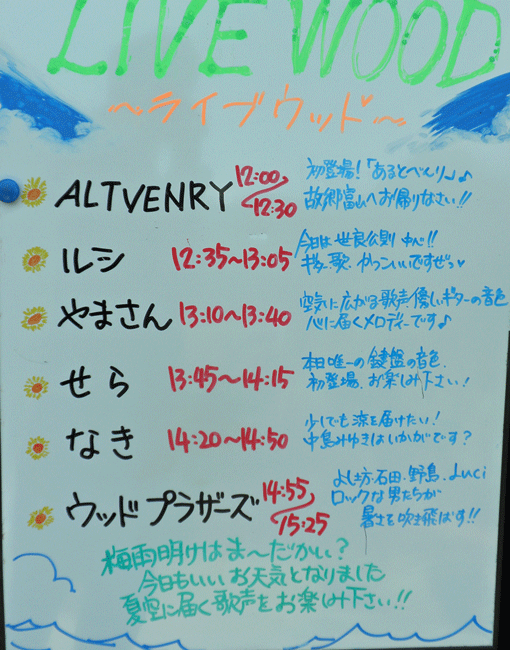 LIVE WOOD
〜ライブウッド〜
ALTVENRY 12:00〜12:30
初登場!「あるとべんりー」♪
故郷富山へお帰りなさい!!
ルシ 12:35〜13:05
今日は世良公則 中心!!
ギター、歌、かっこいいですぜっ
やまさん 13:10〜13:40
空気に広がる歌声、優しいギターの音色
心に届くメロディーです♪
せら 13:45〜14:15
本日唯一の鍵盤の音色
初登場、お楽しみ下さい!
なき 14:20〜14:50
少しでも涼を届けたい!
中島みゆきはいかがです?
ウッドブラザーズ 14:55〜15:25
よし坊・石田・野島・Juci
ロックな男たちが
暑さを吹き飛ばす!!
梅雨明けはま〜だかい?
今日もいいお天気となりました
夏空に届く歌声をお楽しみ下さい!!